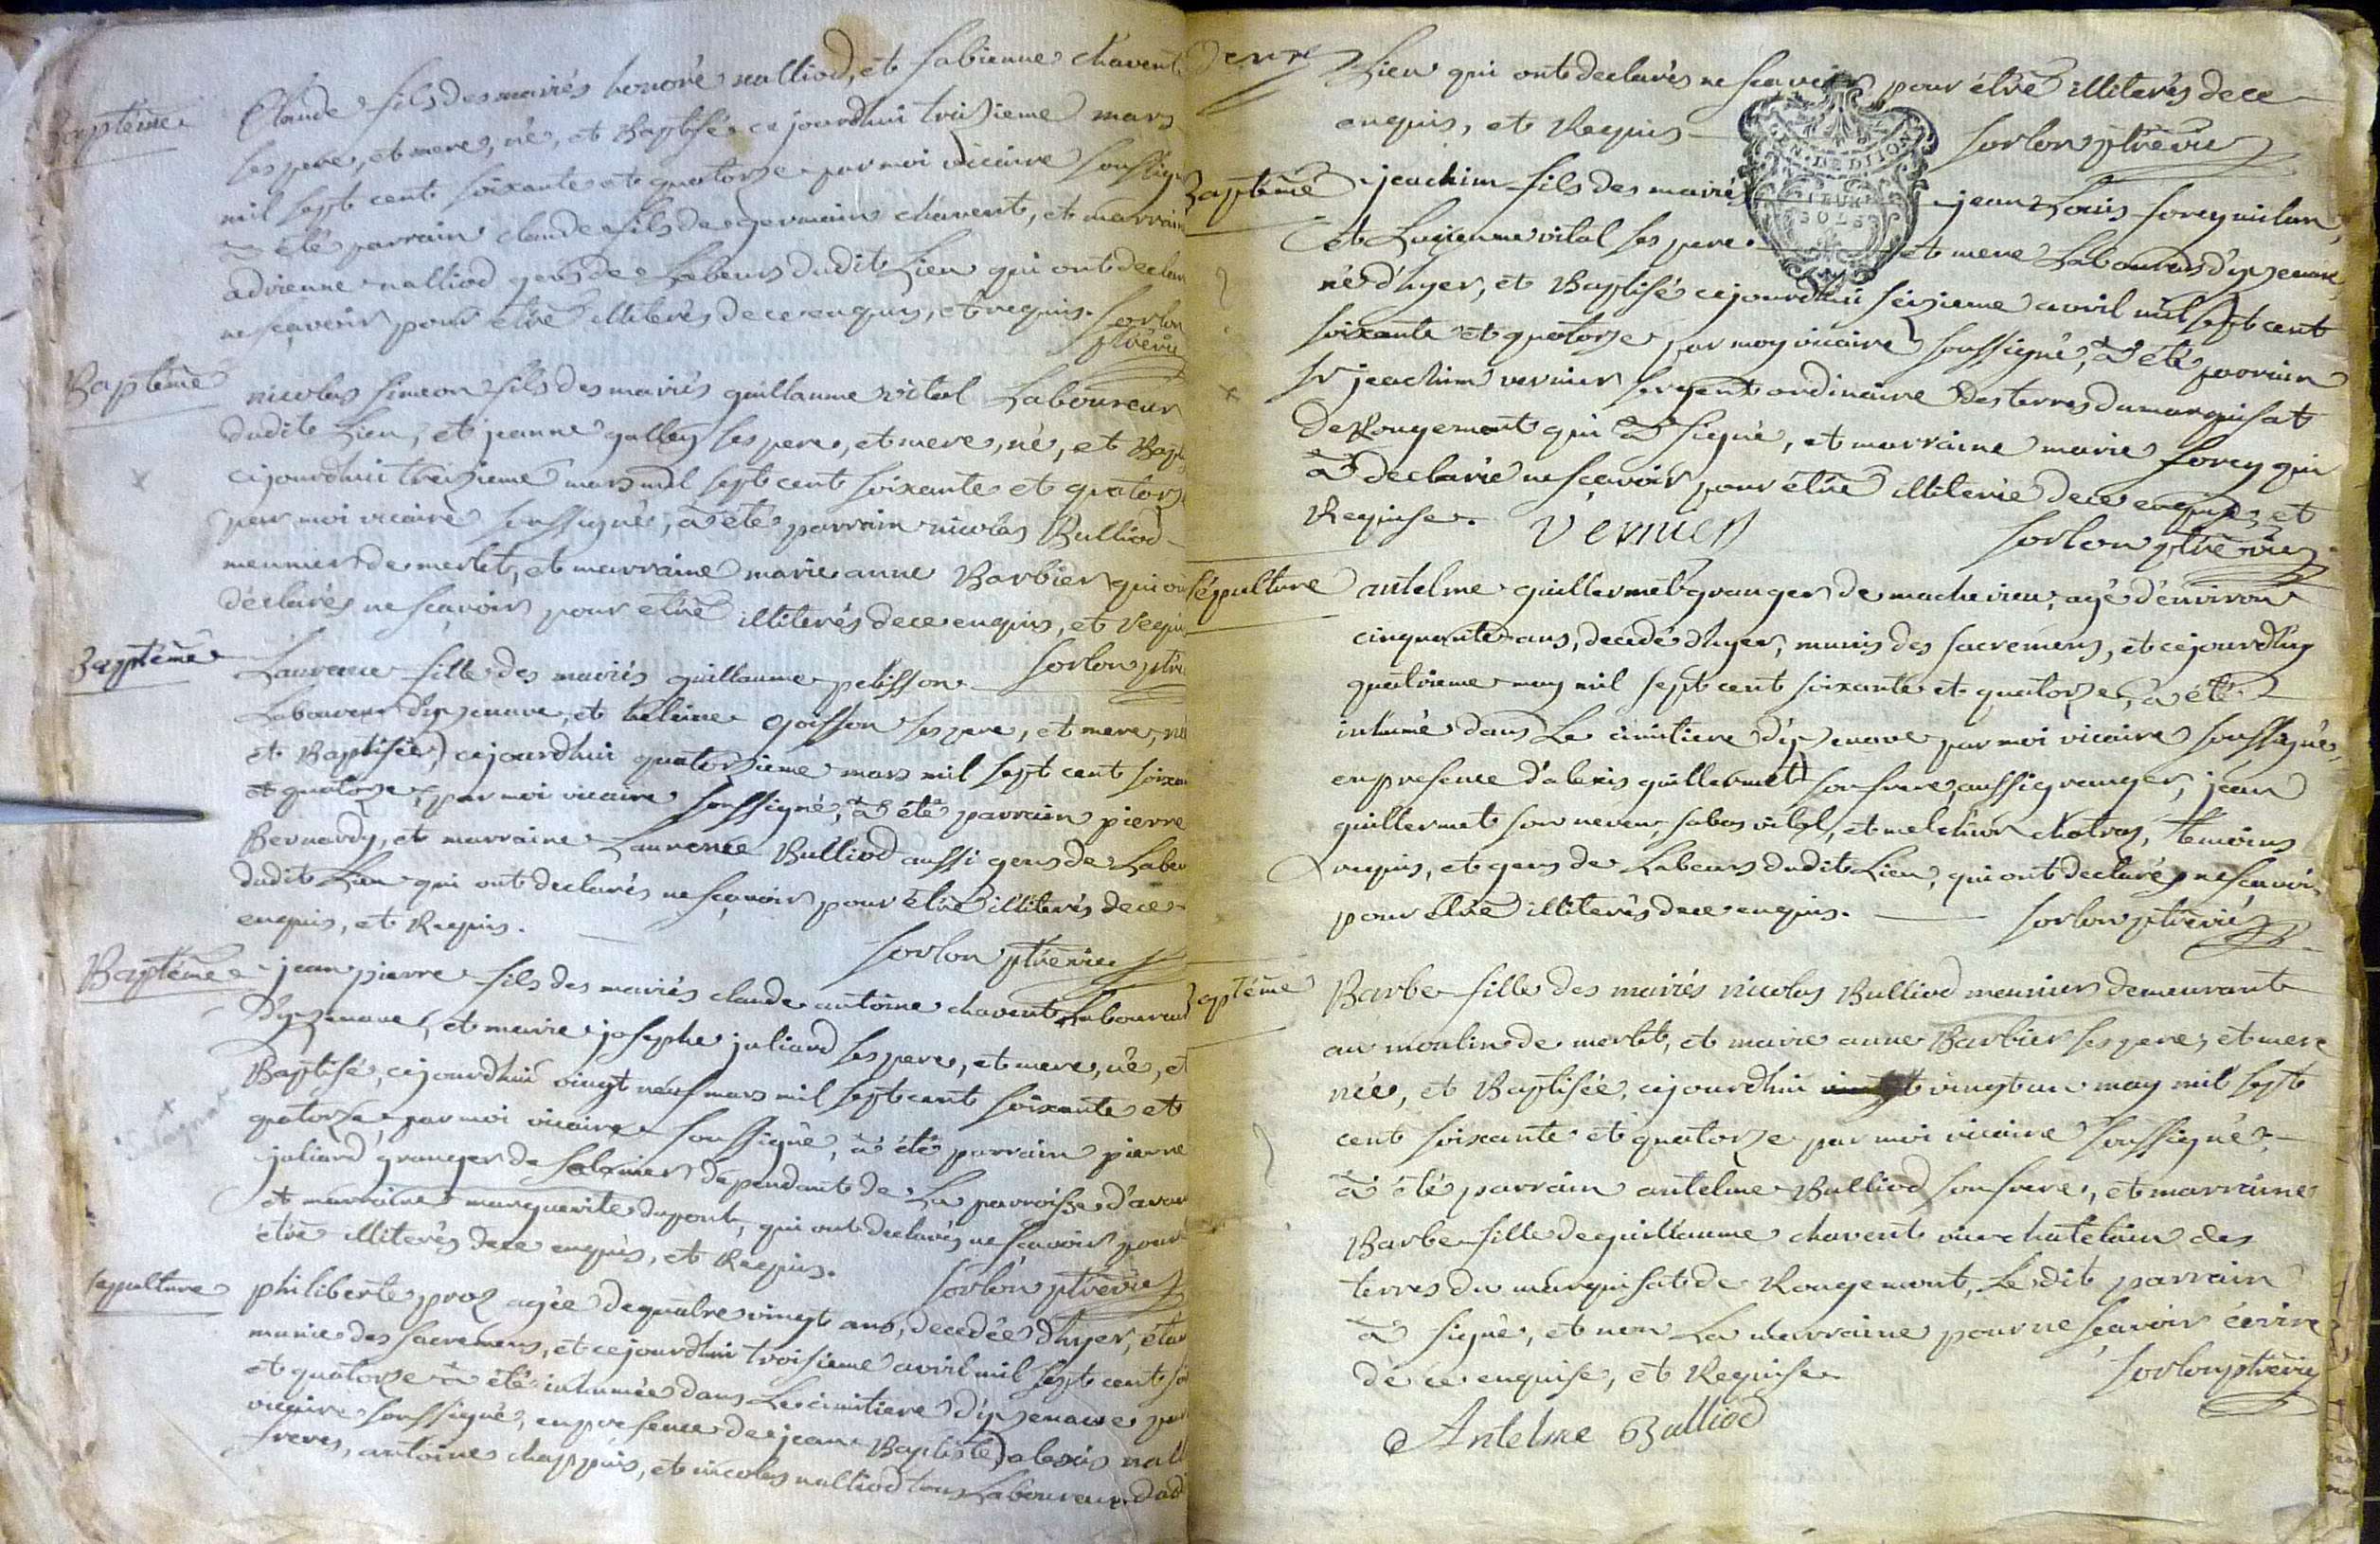 Baptême
Claude fils des mariés honoré nalliod, et fabienne chavent
ses pere, et mere, né, et Baptisé ce jourdhui troisieme mars
mil sept cent soixante et quatorze par moi vicaire soussigné
à été parrain claude fils de germain chavent, et marraine
adrienne nalliod gens de Labeur dudit Lieu qui ont declaré
ne sçavoir pour être illiterés de ce enquis, et requis. sorlon
ptre vic
Baptême
nicolas simeon fils des mariés guillaume vital Laboureur
dudit Lieu, et jeanne galley ses pere, et mere, né, et Bapt
cejourdhui treizieme mars mil sept cent soixante et quatorze
par moi vicaire soussigné, à été parrain nicolas Bulliod
meunier de merlet, et marraine marie anne Barbier qui ont
déclarés ne sçavoir pour etre illiterés de ce enquis, et requis
sorlon ptre
Baptême
Laurence fille des mariés guillaume pelisson
Laboureur d'izenave, et heleine goisson ses pere, et mere, née
et Baptisée, cejourdhui quatorzieme mars mil sept cent soixan
et quatorze, par moi vicaire soussigné, à été parrain pierre
Bernardy, et marraine Laurence Bulliod aussi gens de Labeu
dudit Lieu qui ont declarés ne sçavoir pour être illiterés de ce
enquis, et Requis.
sorlon ptre vic
Baptême
jean pierre fils des mariés claude antoine chavent, laboureur
d'izenave, et marie josephe juliard ses pere, et mere, né, et
Baptisé, cejourdhui vingt neuf mars mil sept cent soixante et
quatorze par moi vicaire soussigné, à été parrain pierre
juliard granger de dependant de La parroisse d'aran
et marraine marguerite dupont, qui ont declarés ne sçavoir pour
être illiterés de ce enquis, et Requis.
sorlon ptre vic
sepulture
philiberte proz agée de quatre vingt ans, decedée d'hyer, étan
munie des sacremens, et cejourdhui troisieme avril mil sept cent soi
et quatorze à été inhumée dans Le cimitiere d'izenave par
vicaire soussigné, en presence de jean Baptiste, alexis nall
freres, antoine chappuis, et nicolas nalliod tous Laboureurs dud
Lieu qui ont declarés ne sçavoir pour être illiterés de ce
enquis, et Requis
sorlon ptre vic
GEN. DE DIJON
DEUX
SOLS
Baptême
jeachim fils des mariés jean Louis forey milan,
et Lucienne vital ses pere et mere Laboureurs d'izenave,
né d'hyer, et Baptisé cejourdhui seizieme avril mil sept cent
soixante et quatorze par moy vicaire soussigné, à été parrain
sr jeachim vernier sergent ordinaire des terres du marquisat
de Rougemont qui à signé, et marraine marie forey qui
à declarée ne sçavoir pour être illiterée de ce enquise, et
Requise. vernier
sorlon ptre vic
sépulture
antelme guillermet granger de machevieu, agé d'environ
cinquante ans, decedé d'hyer, munis des sacremens, et cejourdhuy
quatrieme may mil sept cent soixante et quatorze, à été
inhumé dans Le cimitiere d'izenave par moi vicaire soussigné,
en presence d'alexis guillermet son frere, aussi granger, jean
guillermet son neveu, sabas vital, et melchior chatray, temoins
requis, et gens de Labeurs dudit Lieu, qui ont declarés ne sçavoir
pour être illiterés de ce enquis.
sorlon ptre vic
Baptême
Barbe fille des mariés nicolas Bulliod meunier demeurant
au moulin de merlet, et marie anne Barbier ses pere, et mere
née, et Baptisée, cejourdhui vingt un may mil sept
cent soixante et quatorze par moi vicaire soussigné,
à été parrain antelme Bulliod son frere, et marraine
Barbe fille de guillaume chavent vice chatelain des
terres du marquisat de Rougemont, Le dit parrain
à signé, et non La marraine pour ne sçavoir écrire
de ce enquise, et Requise
sorlon ptre vic
Antelme Bulliod